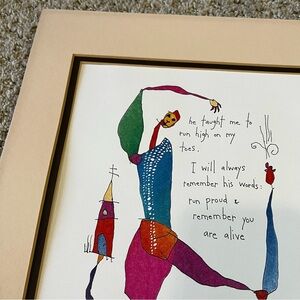 he taught me to
run high on my
toes.
I will always
remember his words:
run proud &
remember you
are alive